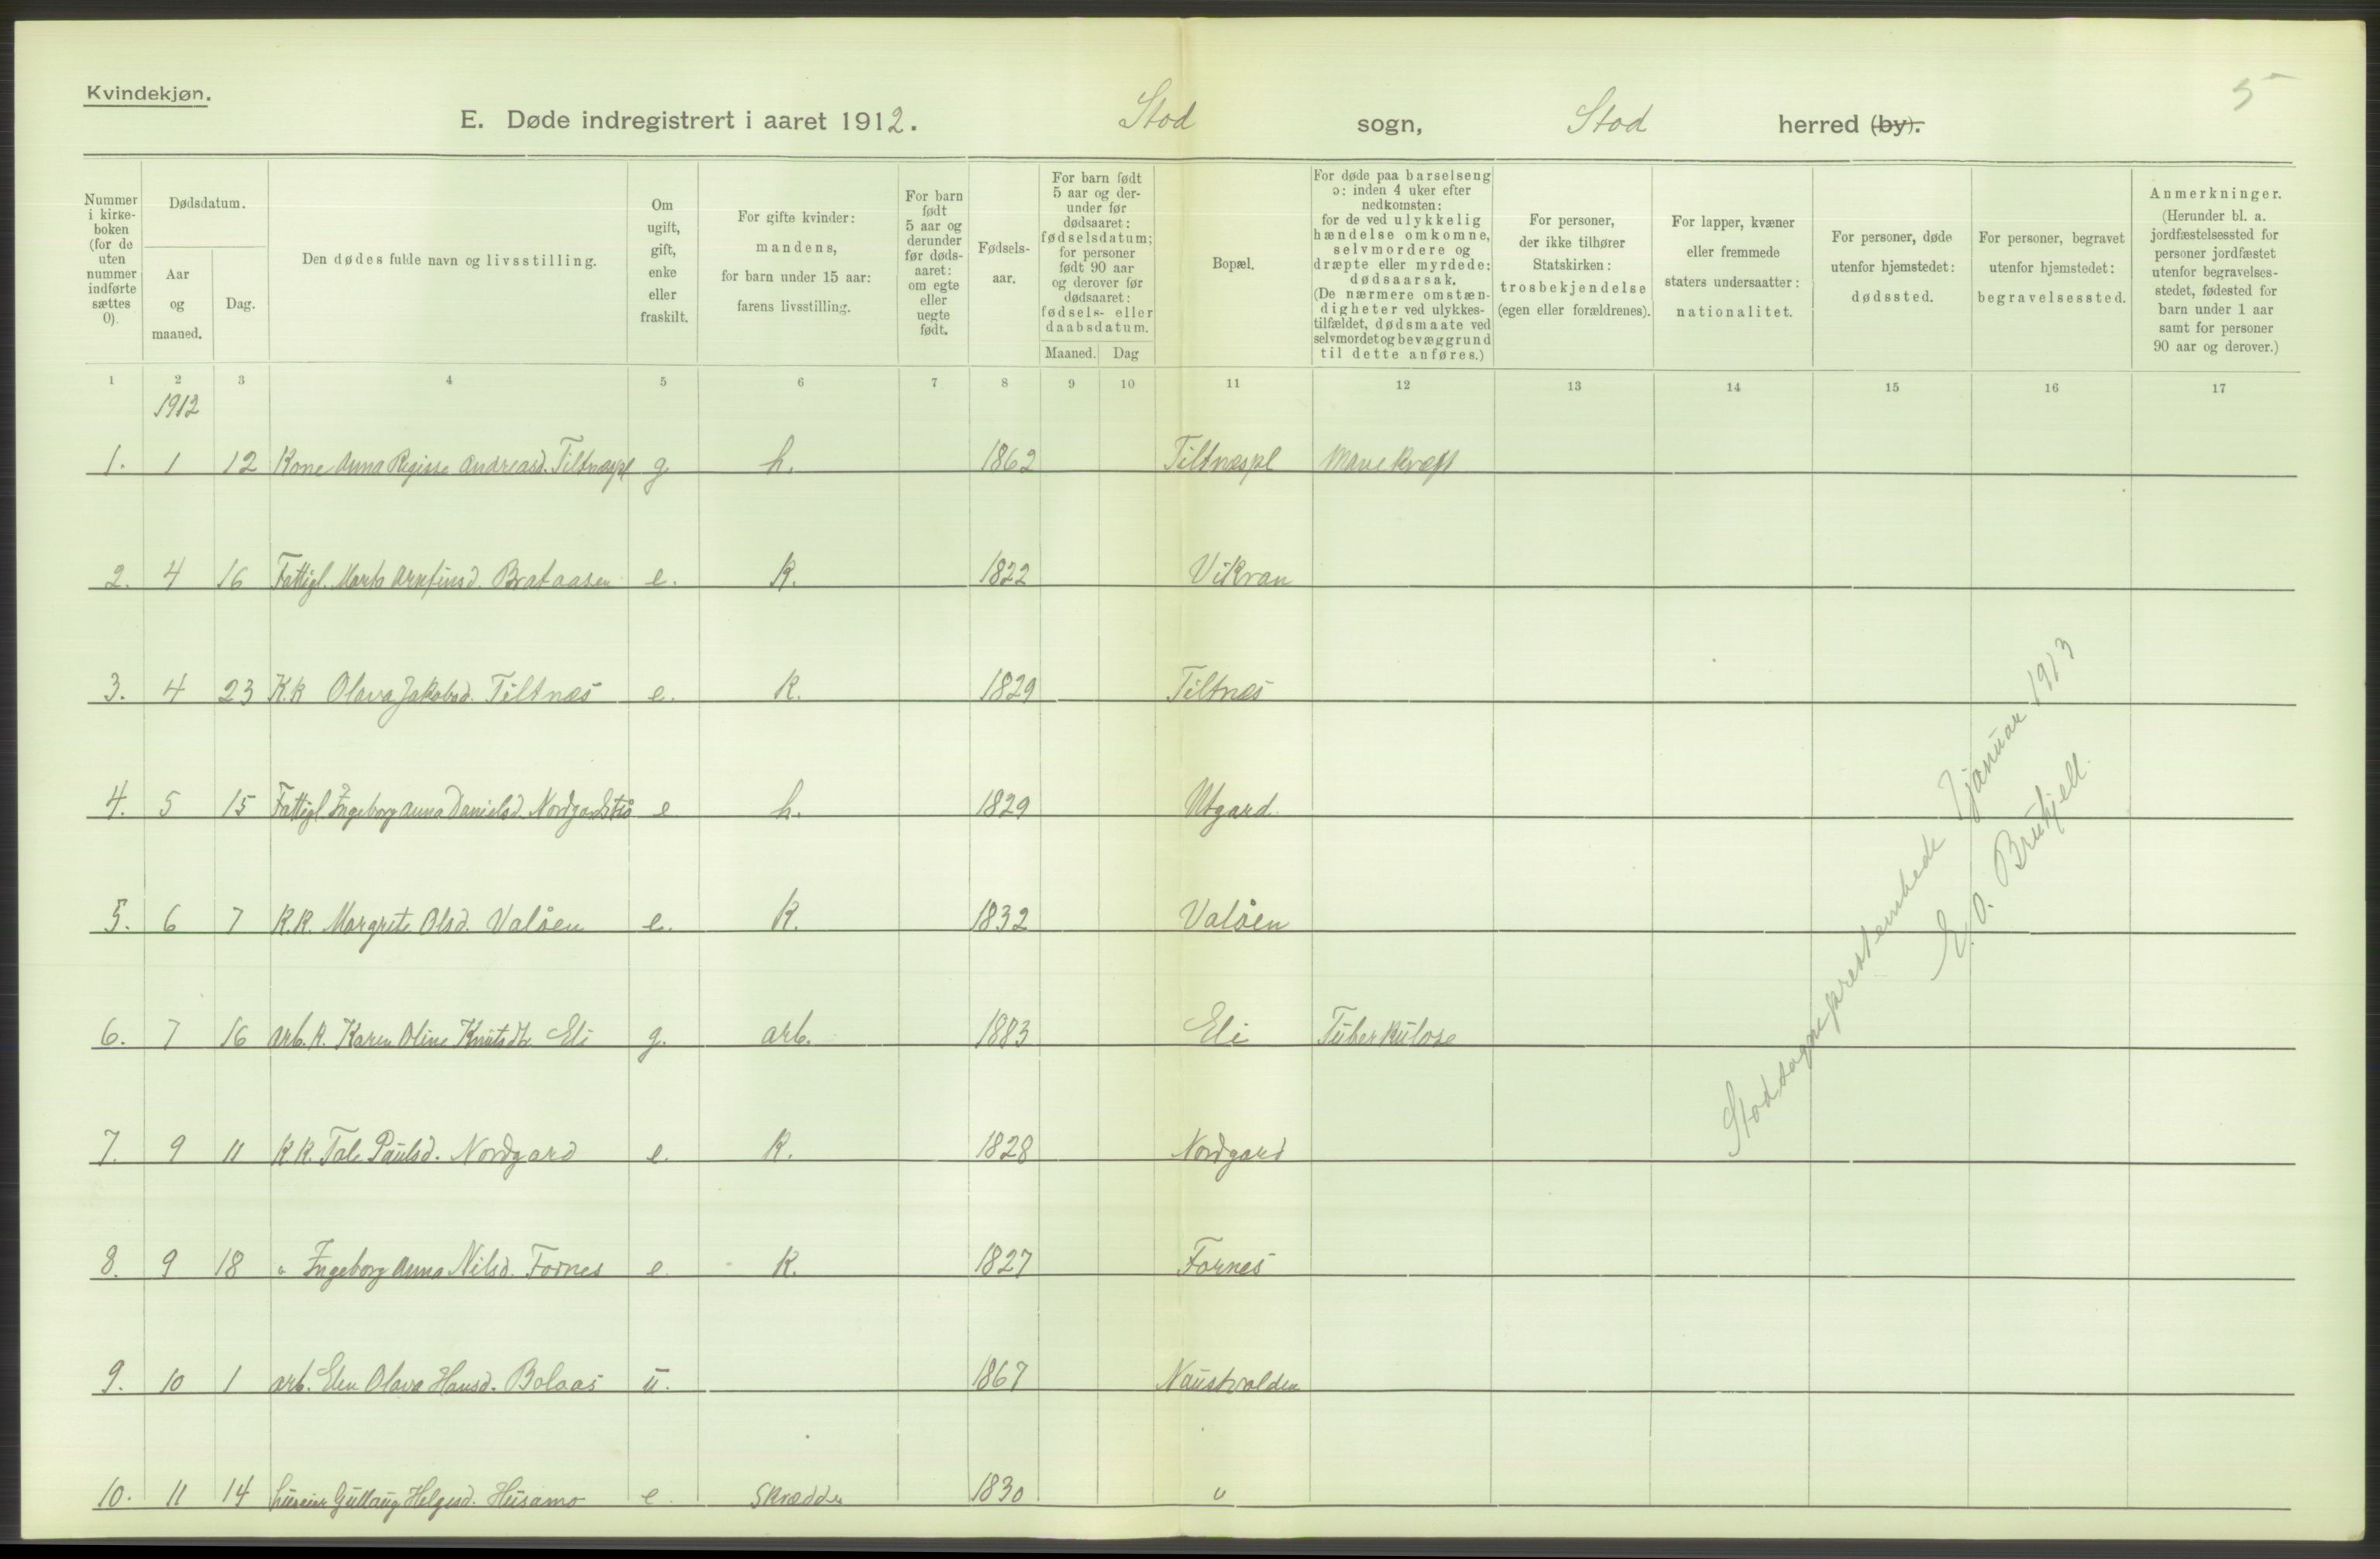 Kvindekjøn.
5
E. Døde indregistrert i aaret 1912. Stod sogn, Stod herred (by).
Nummer i kirkeboken (for de uten nummer indførte sættes 0).
Dødsdatum.
Aar og maaned.
Dag.
Den dødes fulde navn og livsstilling.
Om ugift, gift, enke eller fraskilt.
For gifte kvinder: mandens, for barn under 15 aar: farens livsstilling.
For barn født 5 aar og derunder før dødsaaret: om egte eller uegte født.
Fødselsaar.
For barn født 5 aar og derunder før dødsaaret: fødselsdatum; for personer født 90 aar og derover før dødsaaret: fødsels- eller daabsdatum.
Maaned. Dag
Bopæl.
For døde paa barselseng ɔ: inden 4 uker efter nedkomsten: for de ved ulykkelig hændelse omkomne, selvmordere og dræpte eller myrdede: dødsaarsak. (De nærmere omstændigheter ved ulykkestilfældet, dødsmaate ved selvmordet og bevæggrund til dette anføres.)
For personer, der ikke tilhører Statskirken: trosbekjendelse (egen eller forældrenes).
For lapper, kvæner eller fremmede staters undersaatter: nationalitet.
For personer, døde utenfor hjemstedet: dødssted.
For personer, begravet utenfor hjemstedet: begravelsessted.
Anmerkninger. (Herunder bl. a. jordfæstelsessted for personer jordfæstet utenfor begravelsesstedet, fødested for barn under 1 aar samt for personer 90 aar og derover.)
1 2 3 4 5 6 7 8 9 10 11 12 13 14 15 16 17
1912
1. 1 12 Kone Anna Regisse Andreasd. Tiltnæspl g h. 1862 Tiltnæspl Mavekræft
2. 4 16 Fattigl. Marta Arnfinsd. Brataasen e. K. 1822 Vikran
3. 4 23 K.k Olava Jakobsd. Tiltnæs e. K. 1829 Tiltnæs
4. 5 15 Fattigl Ingeborg Anna Danielsd. e h. 1829 Utgard.
5. 6 7 K.K. Margrete Olsd. Valøen e. K. 1832 Valøen
6. 7 16 arb. k. Karen Oline Knutsdt. Eli g. arb. 1883 Eli Tuberkulose
7. 9 11 K.K. Tale Paulsd. Nordgard e. K. 1828 Nordgard
8. 9 18 " Ingeborg Anna Nilsd. Fornes e K. 1827 Fornes
9. 10 1 arb. Elen Olava Hansd. Bolaas u. 1867 Naustvolden
10. 11 14 Gullaug Helgesd. Husamo e. Skrædder 1830 "
Stod sogneprestembede 7 januar 1913